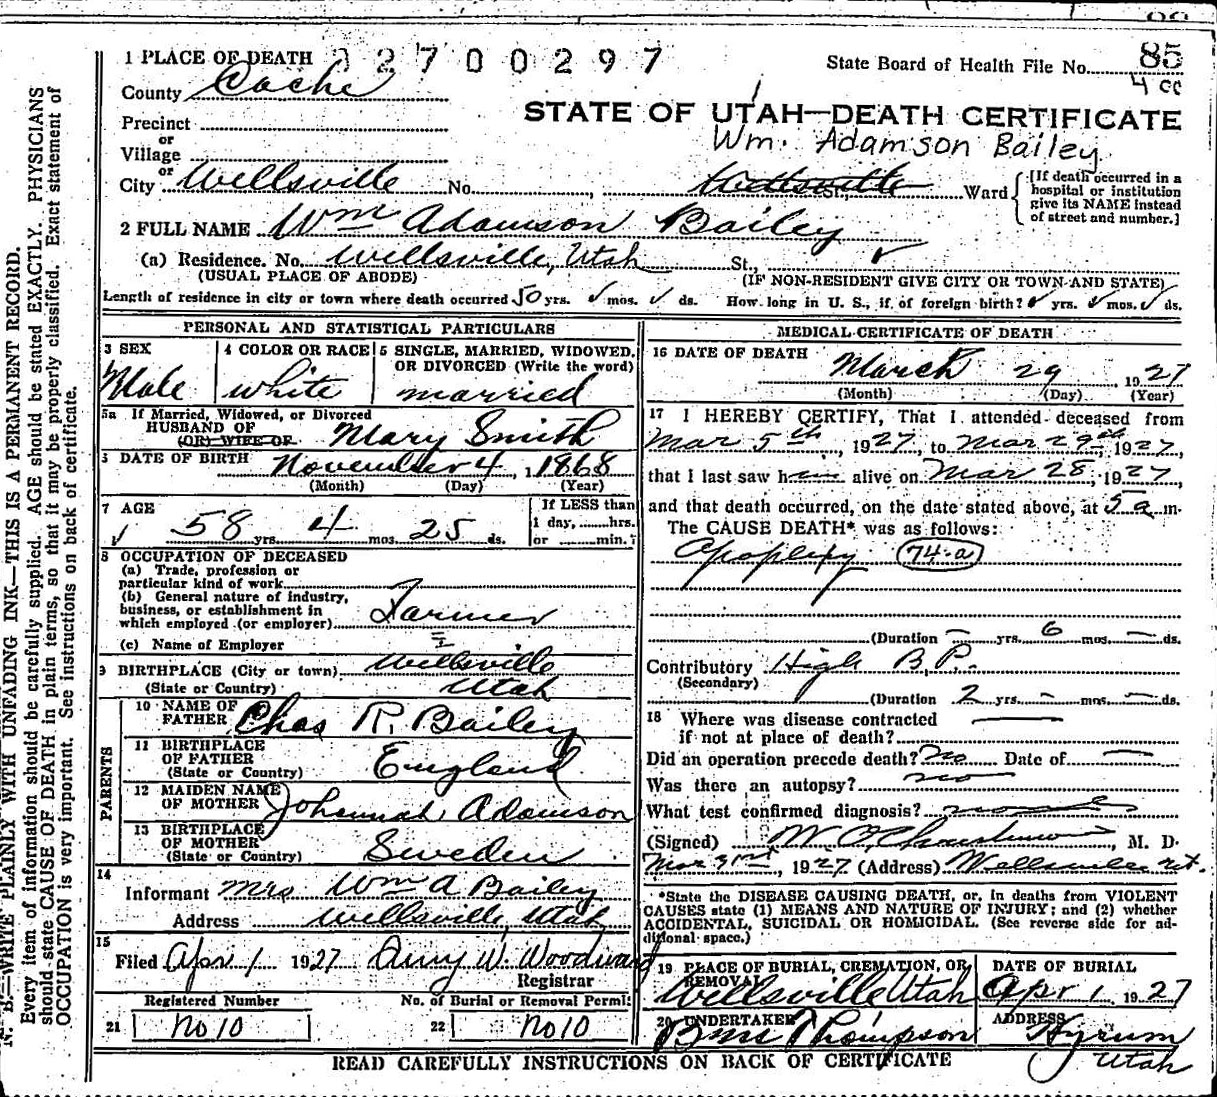 1 PLACE OF DEATH
32700297
State Board of Health File No. 85
County Cache
4 cc
STATE OF UTAH—DEATH CERTIFICATE
Precinct
Wm. Adamson Bailey
or
Village
or
City Wellsville No. , Wellsville St., Ward
[If death occurred in a
hospital or institution
give its NAME instead
of street and number.]
2 FULL NAME Wm Adamson Bailey
(a) Residence. No. Wellsville, Utah St.,
(USUAL PLACE OF ABODE) (IF NON-RESIDENT GIVE CITY OR TOWN AND STATE)
Length of residence in city or town where death occurred 50 yrs. mos. ds. How long in U. S., if of foreign birth? yrs. mos. ds.
PERSONAL AND STATISTICAL PARTICULARS
3 SEX
Male
4 COLOR OR RACE
white
5 SINGLE, MARRIED, WIDOWED,
OR DIVORCED (Write the word)
married
5a If Married, Widowed, or Divorced
HUSBAND OF
(OR) WIFE OF Mary Smith
6 DATE OF BIRTH November 4, 1868
(Month) (Day) (Year)
7 AGE
58 yrs. 4 mos. 25 ds.
If LESS than
1 day, ......hrs.
or ......min.?
8 OCCUPATION OF DECEASED
(a) Trade, profession or
particular kind of work
(b) General nature of industry,
business, or establishment in
which employed (or employer) Farmer
(c) Name of Employer
9 BIRTHPLACE (City or town) Wellsville
(State or Country) Utah
PARENTS
10 NAME OF
FATHER Chas R. Bailey
11 BIRTHPLACE
OF FATHER
(State or Country) England
12 MAIDEN NAME
OF MOTHER Johannah Adamson
13 BIRTHPLACE
OF MOTHER
(State or Country) Sweden
14
Informant Mrs Wm A Bailey
Address Wellsville, Utah
15
Filed Apr 1 1927 Amy W. Woodward
Registrar
Registered Number
21 No 10
No. of Burial or Removal Permit
22 No 10
MEDICAL CERTIFICATE OF DEATH
16 DATE OF DEATH March 29, 1927
(Month) (Day) (Year)
17 I HEREBY CERTIFY, That I attended deceased from
Mar 5th, 1927, to Mar 29th, 1927,
that I last saw him alive on Mar 28, 1927,
and that death occurred, on the date stated above, at 5 a m.
The CAUSE DEATH* was as follows:
Apoplexy 74-a
(Duration — yrs. 6 mos. — ds.
Contributory High B.P.
(Secondary)
(Duration 2 yrs. — mos. — ds.
18 Where was disease contracted
if not at place of death?
Did an operation precede death? No Date of —
Was there an autopsy? no
What test confirmed diagnosis?
(Signed) W. O. , M. D.
1927 (Address) Wellsville Ut.
*State the DISEASE CAUSING DEATH, or, in deaths from VIOLENT
CAUSES state (1) MEANS AND NATURE OF INJURY; and (2) whether
ACCIDENTAL, SUICIDAL OR HOMICIDAL. (See reverse side for ad-
ditional space.)
19 PLACE OF BURIAL, CREMATION, OR
REMOVAL
Wellsville Utah
DATE OF BURIAL
Apr 1 1927
20 UNDERTAKER
Thompson
ADDRESS
Hyrum
Utah
READ CAREFULLY INSTRUCTIONS ON BACK OF CERTIFICATE
N. B.—WRITE PLAINLY WITH UNFADING INK—THIS IS A PERMANENT RECORD.
Every item of information should be carefully supplied. AGE should be stated EXACTLY. PHYSICIANS
should state CAUSE OF DEATH in plain terms, so that it may be properly classified. Exact statement of
OCCUPATION is very important. See instructions on back of certificate.